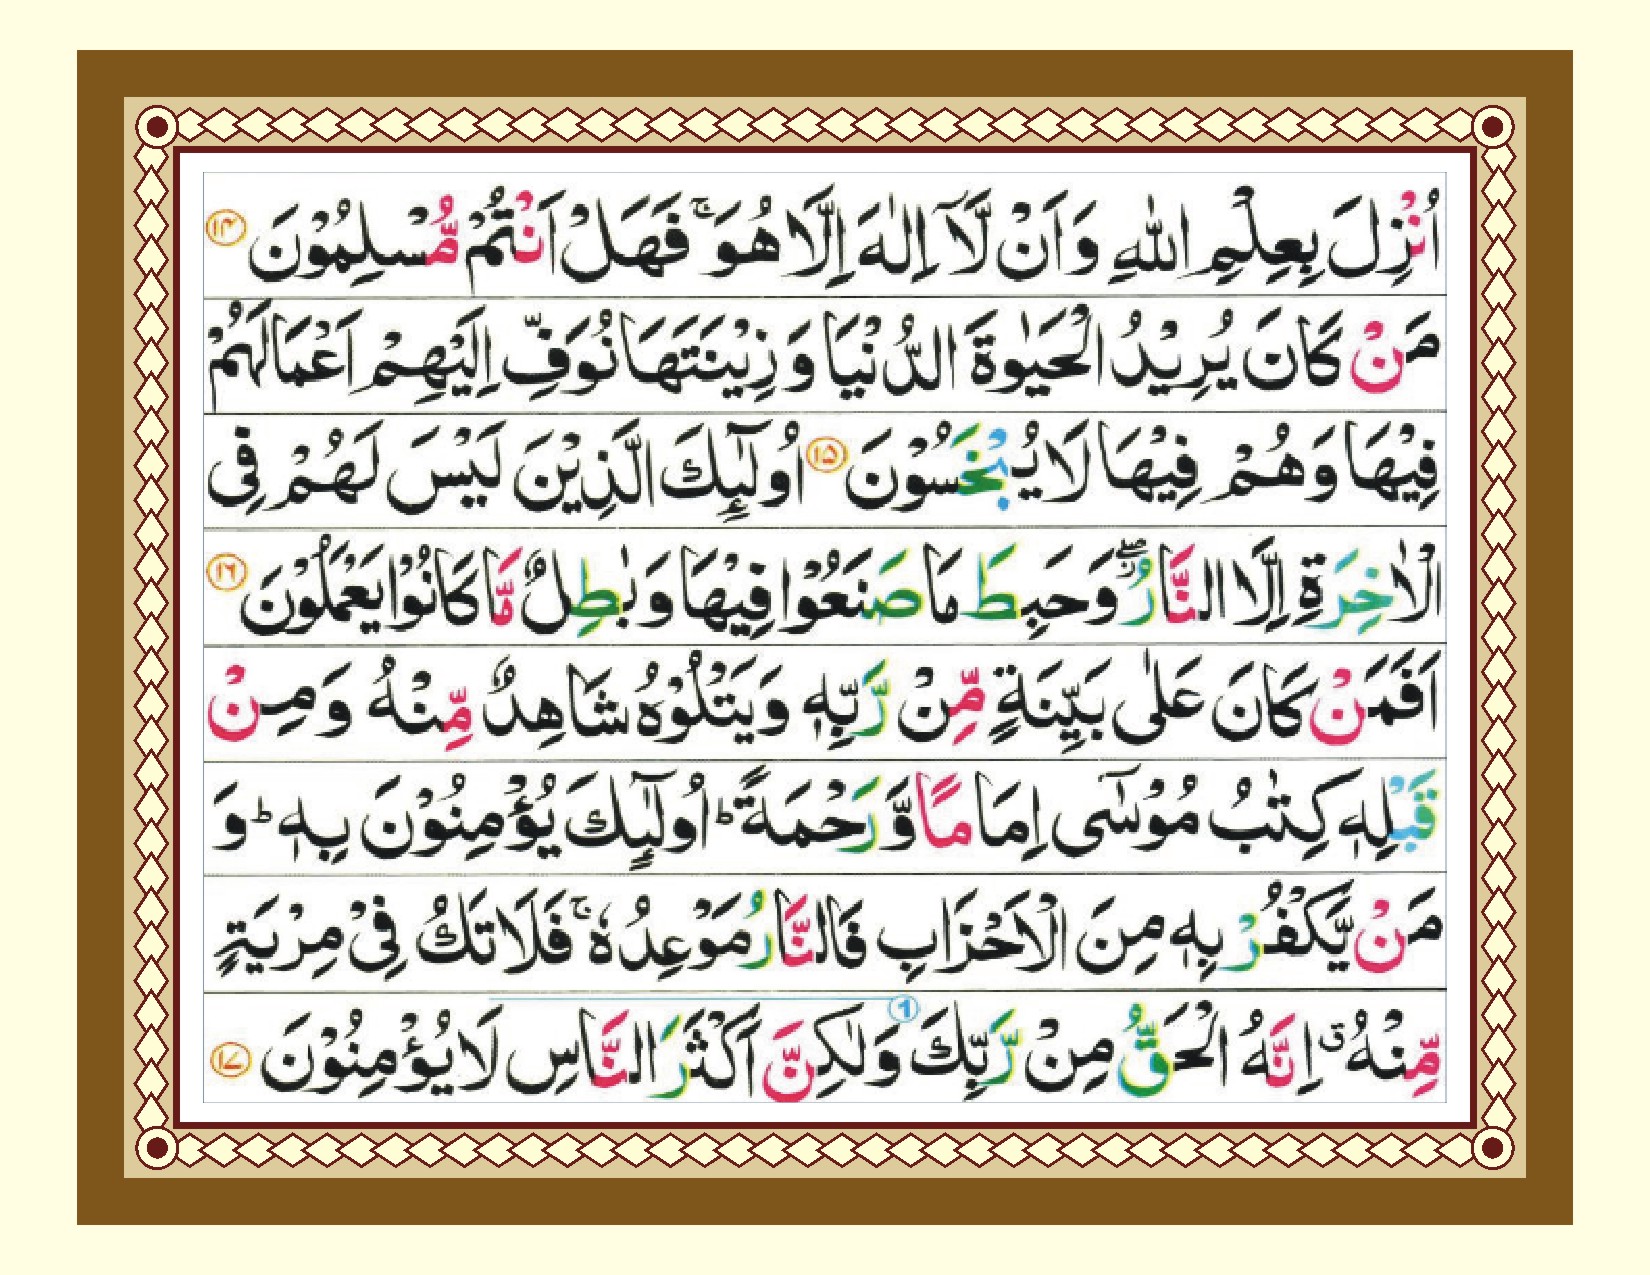 اُنْزِلَ بِعِلْمِ اللّٰهِ وَاَنْ لَّاۤ اِلٰهَ اِلَّا هُوَ ۚ فَهَلْ اَنْتُمْ مُّسْلِمُوْنَ ۝۱۴
مَنْ كَانَ يُرِيْدُ الْحَيٰوةَ الدُّنْيَا وَزِيْنَتَهَا نُوَفِّ اِلَيْهِمْ اَعْمَالَهُمْ
فِيْهَا وَهُمْ فِيْهَا لَا يُبْخَسُوْنَ ۝۱۵ اُولٰٓئِكَ الَّذِيْنَ لَيْسَ لَهُمْ فِی
الْاٰخِرَةِ اِلَّا النَّارُ ۖ وَحَبِطَ مَا صَنَعُوْا فِيْهَا وَبٰطِلٌ مَّا كَانُوْا يَعْمَلُوْنَ ۝۱۶
اَفَمَنْ كَانَ عَلٰى بَيِّنَةٍ مِّنْ رَّبِّهٖ وَيَتْلُوْهُ شَاهِدٌ مِّنْهُ وَمِنْ
قَبْلِهٖ كِتٰبُ مُوْسٰۤى اِمَامًا وَّرَحْمَةً ؕ اُولٰٓئِكَ يُؤْمِنُوْنَ بِهٖ ؕ وَ
مَنْ يَّكْفُرْ بِهٖ مِنَ الْاَحْزَابِ فَالنَّارُ مَوْعِدُهٗ ۚ فَلَا تَكُ فِیْ مِرْيَةٍ
مِّنْهُ ۗ اِنَّهُ الْحَقُّ مِنْ رَّبِّكَ وَلٰكِنَّ اَكْثَرَ النَّاسِ لَا يُؤْمِنُوْنَ ۝۱۷